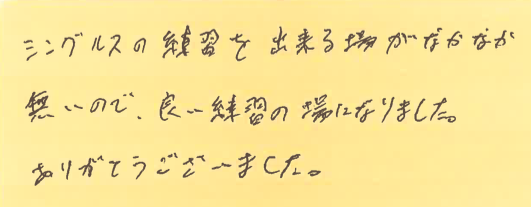 シングルスの練習を出来る場がなかなか
無いので、良い練習の場になりました。
ありがとうございました。